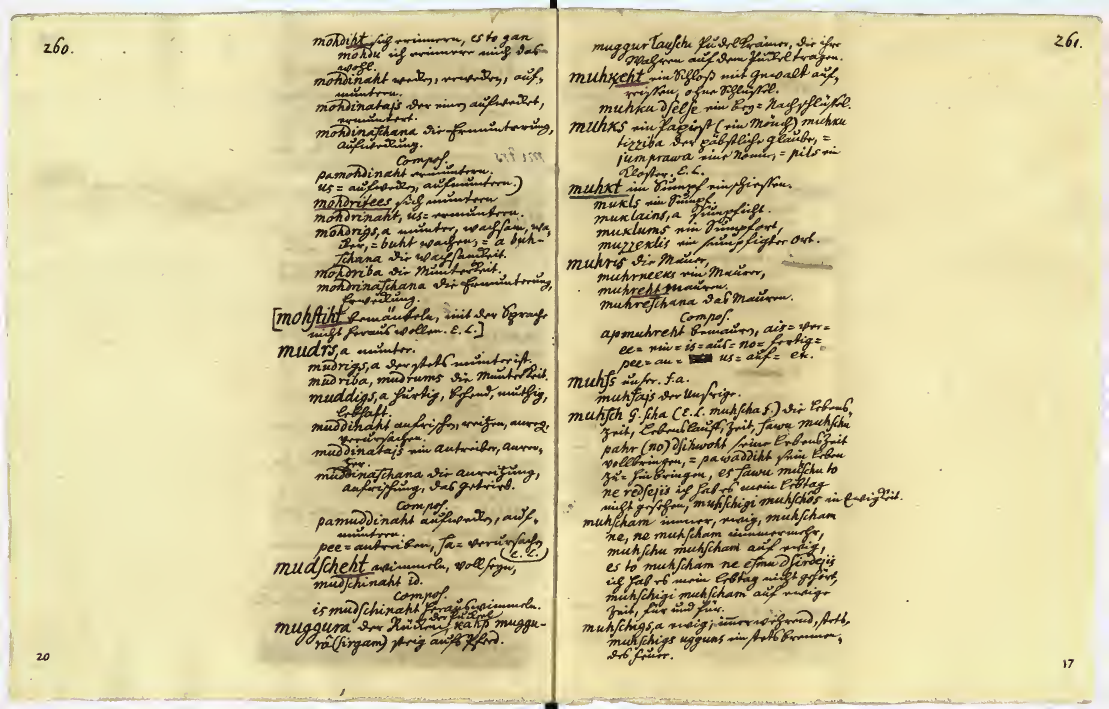 260.
mohdiht sich erinnern, es to gan
mohdu ich erinnere mich das
wohl.
mohdinaht wecken, erwecken, auf-
muntern.
mohdinatajs der einen aufwecket,
ermuntert.
mohdinaschana die Ermunterung,
Aufweckung.
Compos.
pamohdinaht ermuntern.
us= aufwecken, aufmuntern.)
mohdritees sich muntern
mohdrinaht, us= ermuntern.
mohdrigs, a munter, wachsam, wa-
cker, = buht wachen, = a buh-
schana die Wachsamkeit.
mohdriba die Munterkeit.
mohdrinaschana die Ermunterung,
Erweckung.
[mohstiht bemänteln, mit der Sprache
nicht heraus wollen. E. L.]
mudrs, a munter.
mudrigs, a der stets munter ist.
mudriba, mudrums die Munterkeit.
muddigs, a hurtig, behend, muthig,
lebhaft.
muddinaht anfrischen, reitzen, anreg,
verursachen.
muddinatajs ein Antreiber, Anrei-
tzer.
muddinaschana die Anreitzung,
Anfrischung, das Getrieb.
Compos.
pamuddinaht aufwecken, auf-
muntern.
pee= antreiben, sa= verursachen
(E. L.)
mudscheht wimmeln, voll seyn,
mudschinaht id.
Compos.
is mudschinaht herauswimmeln.
der Puckel
muggura der Rücken, kahp muggu-
râ (sirgam) steig aufs Pferd.
20
261.
muggurlauschi Pudelkrämer, die ihre
Wahren auf dem Puckel tragen.
muhkeht ein Schloß mit Gewalt auf-
reissen, ohne Schlüssel.
muhku dselse ein Bey= Nachschlüssel.
muhks ein Papist (ein Mönch) muhku
tizziba der päbstliche Glaube, =
jumprawa eine Nonne, = pils ein
Kloster. E. L.
muhkt im Sumpf einschiessen.
mukls ein Sumpf.
muklains, a Sumpficht.
muklums ein Sumpfort,
muzzeklis ein sumpfigter Ort.
muhris die Mauer,
muhrneeks ein Maurer,
muhreht mauren.
muhreschana das Mauren.
Compos.
apmuhreht bemauren, ais= ver=
ee= ein= is= aus= no= fertig=
pee= an= us= auf= ex.
muhss unser. f. a.
muhsajs der Unsrige.
muhsch G. scha (E. L. muhscha f.) die Lebens-
zeit, Lebenslauff, Zeit, sawu muhschu
pahr (no) dsihwoht seine Lebenszeit
vollbringen, = pawaddiht sein Leben
zu= hinbringen, es sawu muhschu to
ne redsejis ich hab es mein Lebtag
nicht gesehen, muhschigi muhschôs in Ewigkeit.
muhscham immer, ewig, muhscham
ne, ne muhscham nimmermehr,
muhschu muhscham auf ewig,
es to muhscham ne esmu dsirdejis
ich hab es mein Lebtag nicht gehört,
muhschigi muhscham auf ewige
Zeit, für und für.
muhschigs, a ewig, immerwährend, stets,
muhschigs ugguns ein stets brennen-
des Feuer.
17